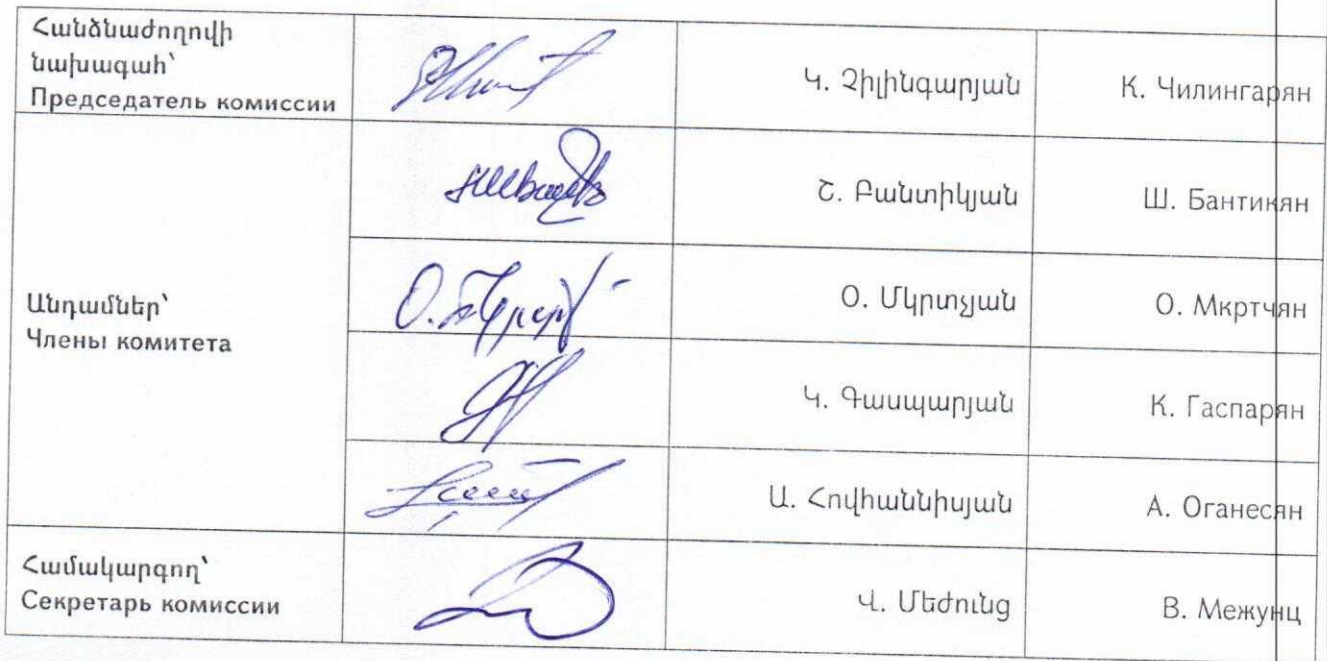 Հանձնաժողովի
նախագահ՝
Председатель комиссии
Կ. Չիլինգարյան
К. Чилингарян
Շ. Բանտիկյան
Ш. Бантикян
Անդամներ՝
Члены комитета
Օ. Մկրտչյան
О. Мкртчян
Կ. Գասպարյան
К. Гаспарян
Ա. Հովհաննիսյան
А. Оганесян
Համակարգող՝
Секретарь комиссии
Վ. Մեժունց
В. Межунц